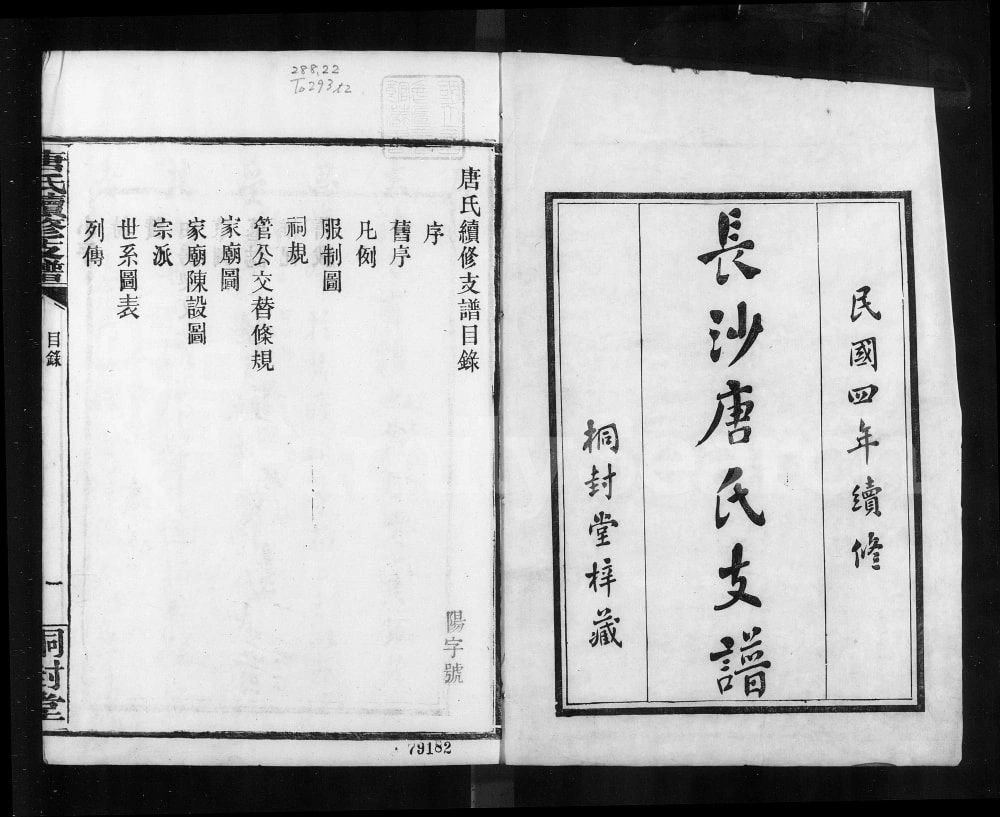 民國四年續修
長沙唐氏支譜
桐封堂梓藏
288.22
To293t2
唐氏續修支譜目錄
陽字號
序
舊序
凡例
服制圖
祠規
管公交替條規
家廟圖
家廟陳設圖
宗派
世系圖表
列傳
唐氏續修支譜
目錄
一
桐封堂
79182